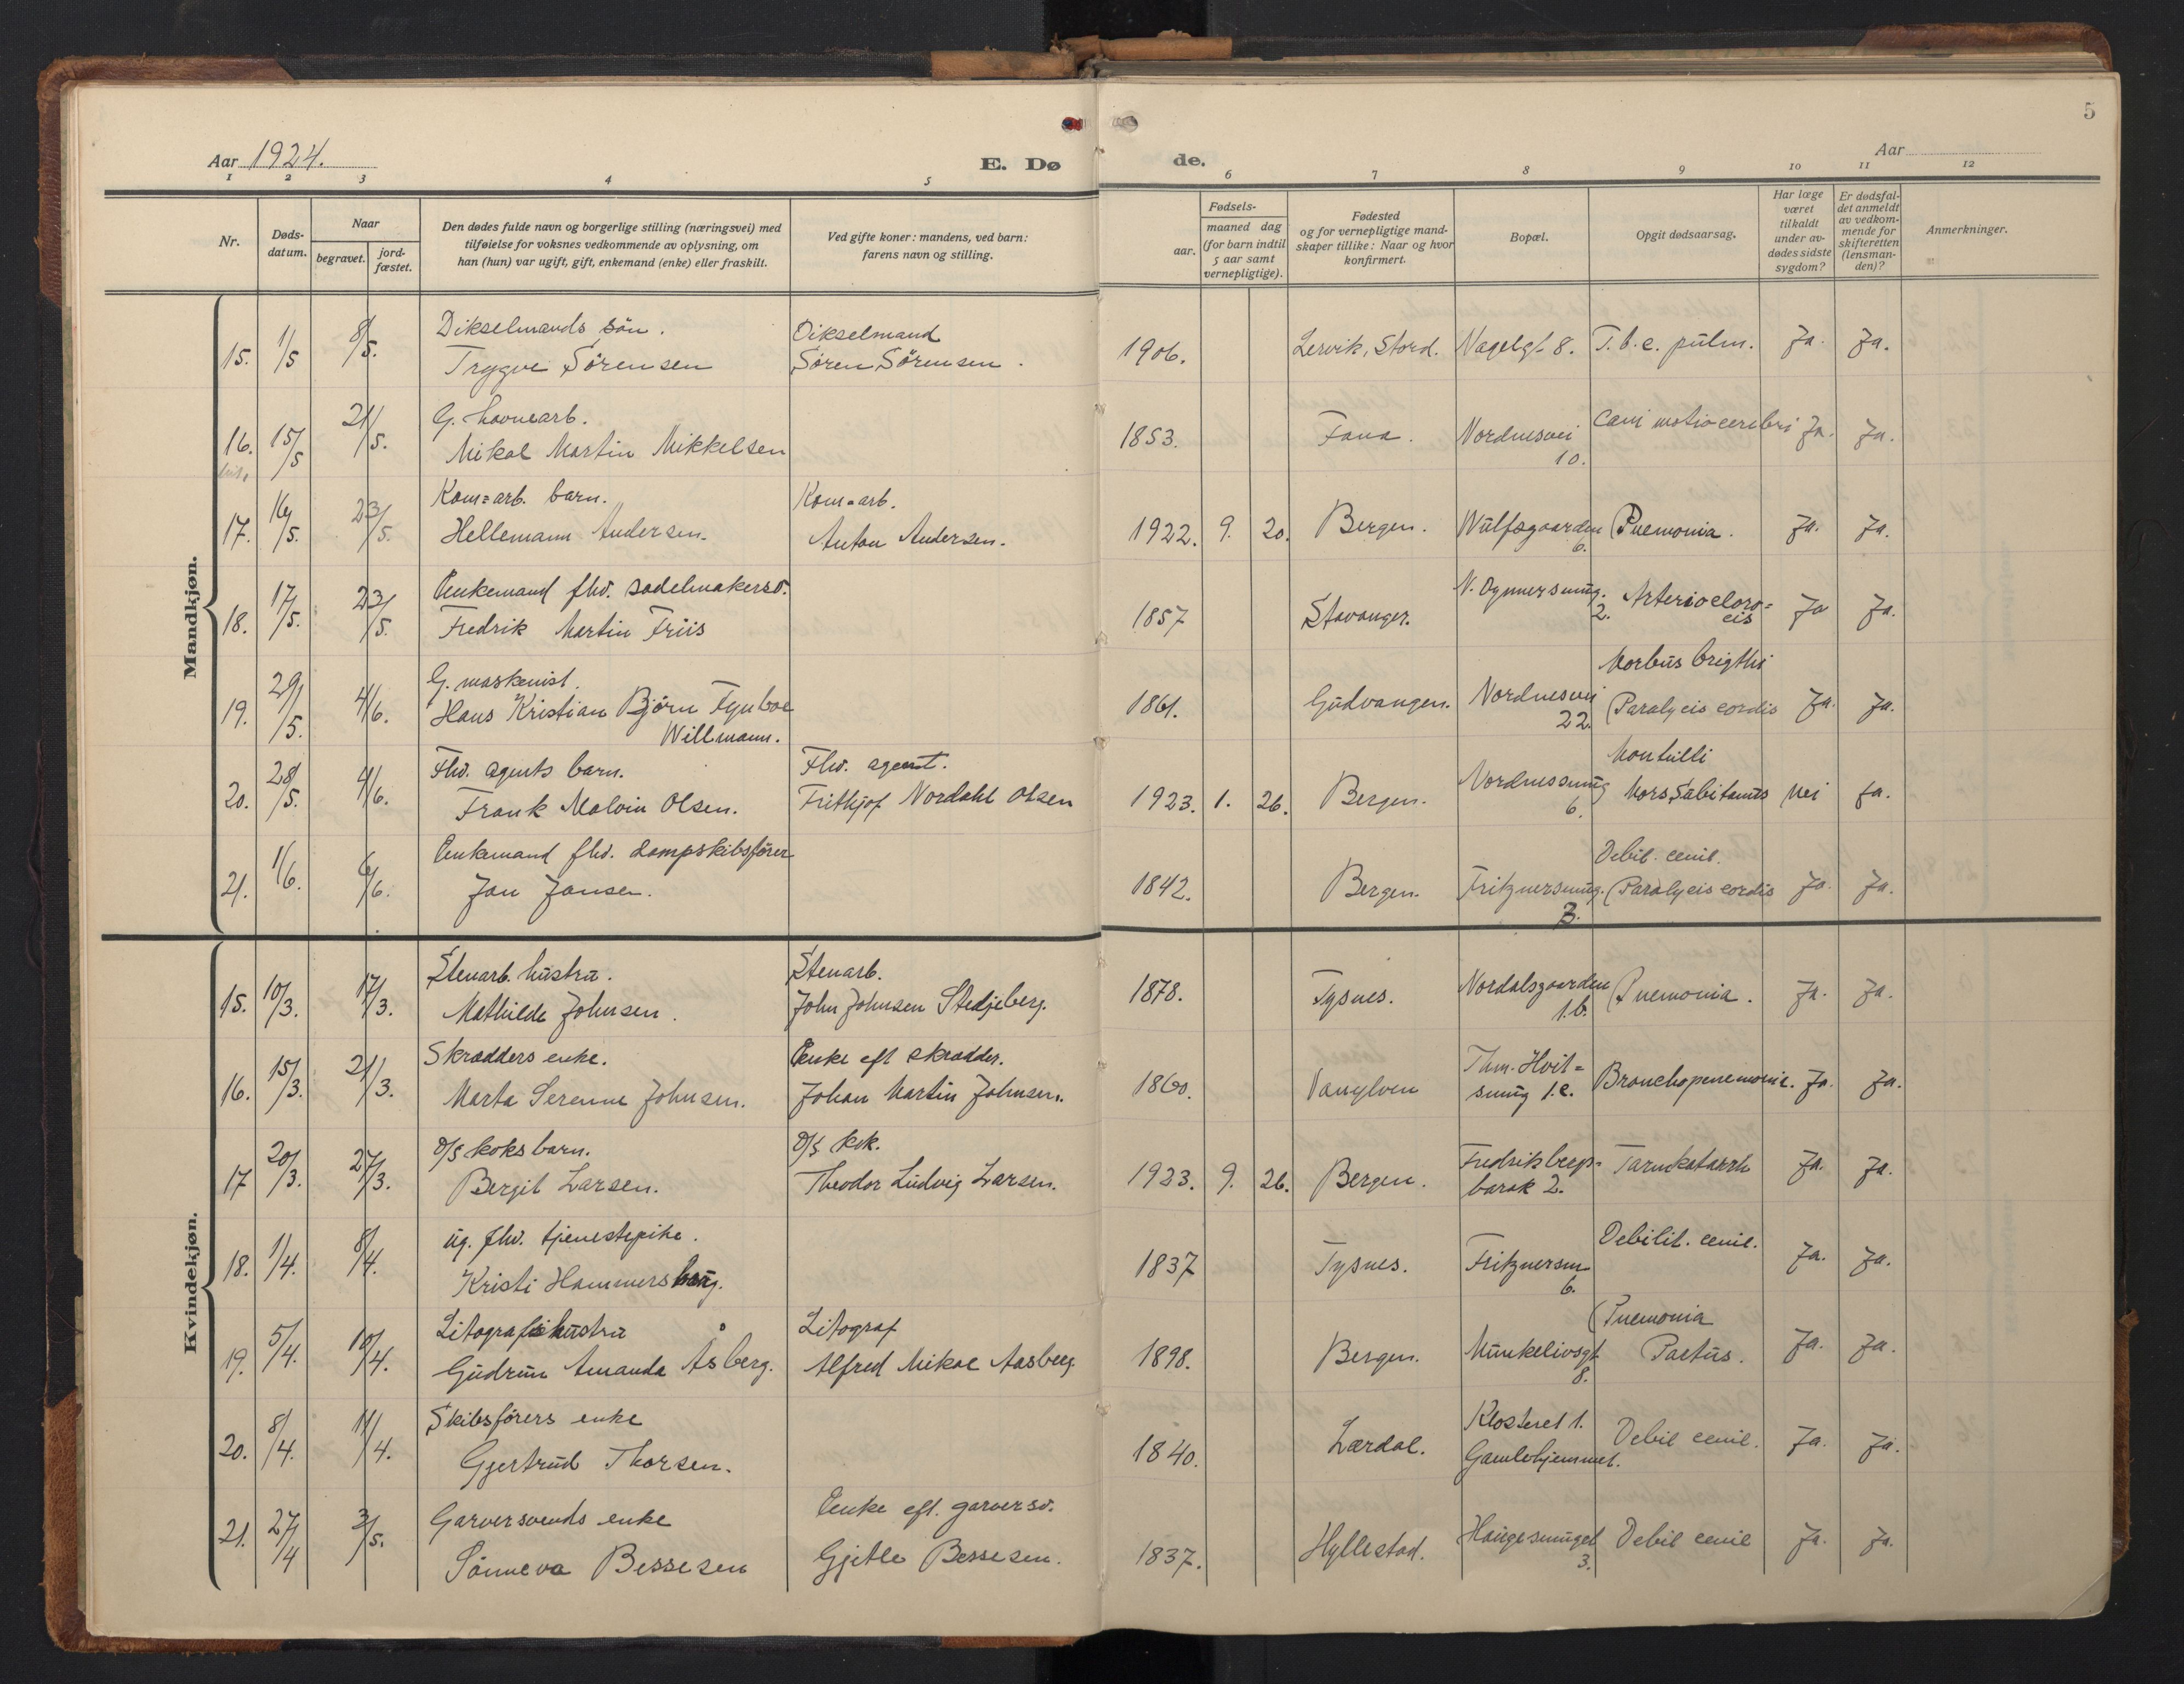 5
Aar 1924.
E. Dø
de.
Aar
1 2 3 4 5 6 7 8 9 10 11 12
Nr.
Døds-
datum.
Naar
begravet.
jord-
fæstet.
Den dødes fulde navn og borgerlige stilling (næringsvei) med
tilføielse for voksnes vedkommende av oplysning, om
han (hun) var ugift, gift, enkemand (enke) eller fraskilt.
Ved gifte koner: mandens, ved barn:
farens navn og stilling.
Fødsels-
aar.
maaned dag
(for barn indtil
5 aar samt
vernepligtige).
Fødested
og for vernepligtige mand-
skaper tillike: Naar og hvor
konfirmert.
Bopæl.
Opgit dødsaarsag.
Har læge
været
tilkaldt
under av-
dødes sidste
sygdom?
Er dødsfal-
det anmeldt
av vedkom-
mende for
skifteretten
(lensman-
den)?
Anmerkninger.
Mandkjøn.
15. 1/5 8/5. Dikselmands sön. Dikselmand
Trygve Sörensen Sören Sörensen. 1906. Lervik, Stord. Nagelgt 8. T.b.c. pulm. Ja. Ja.
16. 15/5 21/5. G. havnearb.
Mikal Martin Mikkelsen 1853. Fana. Nordnesvei 10. motio cerebri Ja. Ja.
17. 16/5. 23/5. Kom=arb. barn. Kom=arb.
Hellemann Andersen. Anton Andersen. 1922. 9. 20. Bergen. Wulfsgaarden 6. Pnemonia. Ja. Ja.
18. 17/5. 23/5. Enkemand fhv. sadelmakersv.
Fredrik Martin Friis 1857 Stavanger. 2. Arteriocloro=
cis Ja Ja.
19. 29/5. 4/6. G. maskinist. Morbus brigthi
Hans Kristian Björn Fynboe 1861. Gudvangen. Nordnesvei 22. Paralycis cordis Ja. Ja.
Willmann.
20. 28/5. 4/6. Fhv. agents barn. Fhv. agent.
Frank Malvin Olsen. Frithjof Nordahl Olsen 1923. 1. 26. Bergen. Nordnessmug 6. Mors Subitanus Nei Ja.
21. 1/6. 6/6. Enkemand fhv. dampskibsförer Debil. cenil.
Jan Jansen. 1842. Bergen. Fritznersmug. 3. Paralycis cordis Ja. Ja.
Kvindekjøn.
15. 10/3. 17/3. Stenarb. hustru. Stenarb.
Mathilde Johnsen. John Johnsen Stedjeberg. 1878. Tysnes. Nordalsgaarden 1.b. Pnemonia. Ja. Ja.
16. 15/3. 21/3. Skradders enke. Enke eft skradder. Thm. Hvit=
Marta Serenne Johnsen. Johan Martin Johnsen. 1860. Vanylven smug 1.c. Bronchopenemonie. Ja. Ja.
17 20/3. 27/3. D/S koks barn. D/S kok. Fredriksberg=
Bergit Larsen. Theodor Ludvig Larsen. 1923. 9. 26. Bergen. barak 2. Tarmkatarrh Ja. Ja.
18. 1/4. 8/4. ug. fhv. tjenestepike.
Kristi Hammershaug. 1837 Tysnes. Fritznersm 6. Debilit. cenil. Ja. Ja.
19. 5/4. 10/4. Litografs hustru Litograf Pnemonia
Gudrun Amanda Åsberg. Alfred Mikal Aasberg 1898. Bergen. Munkelivsgt 8. Partus. Ja. Ja.
20. 8/4. 11/4. Skibsförers enke Klosteret 1.
Gjertrud Thorsen. 1840. Lærdal. Gamlehjemmet. Debil cenil. Ja. Ja.
21. 27/4 3/5. Garversvends enke Enke eft. garversv.
Sönneva Bessesen Gjetle Bessesen. 1837. Hyllestad. Haugesmuget 3. Debil cenil Ja. Ja.